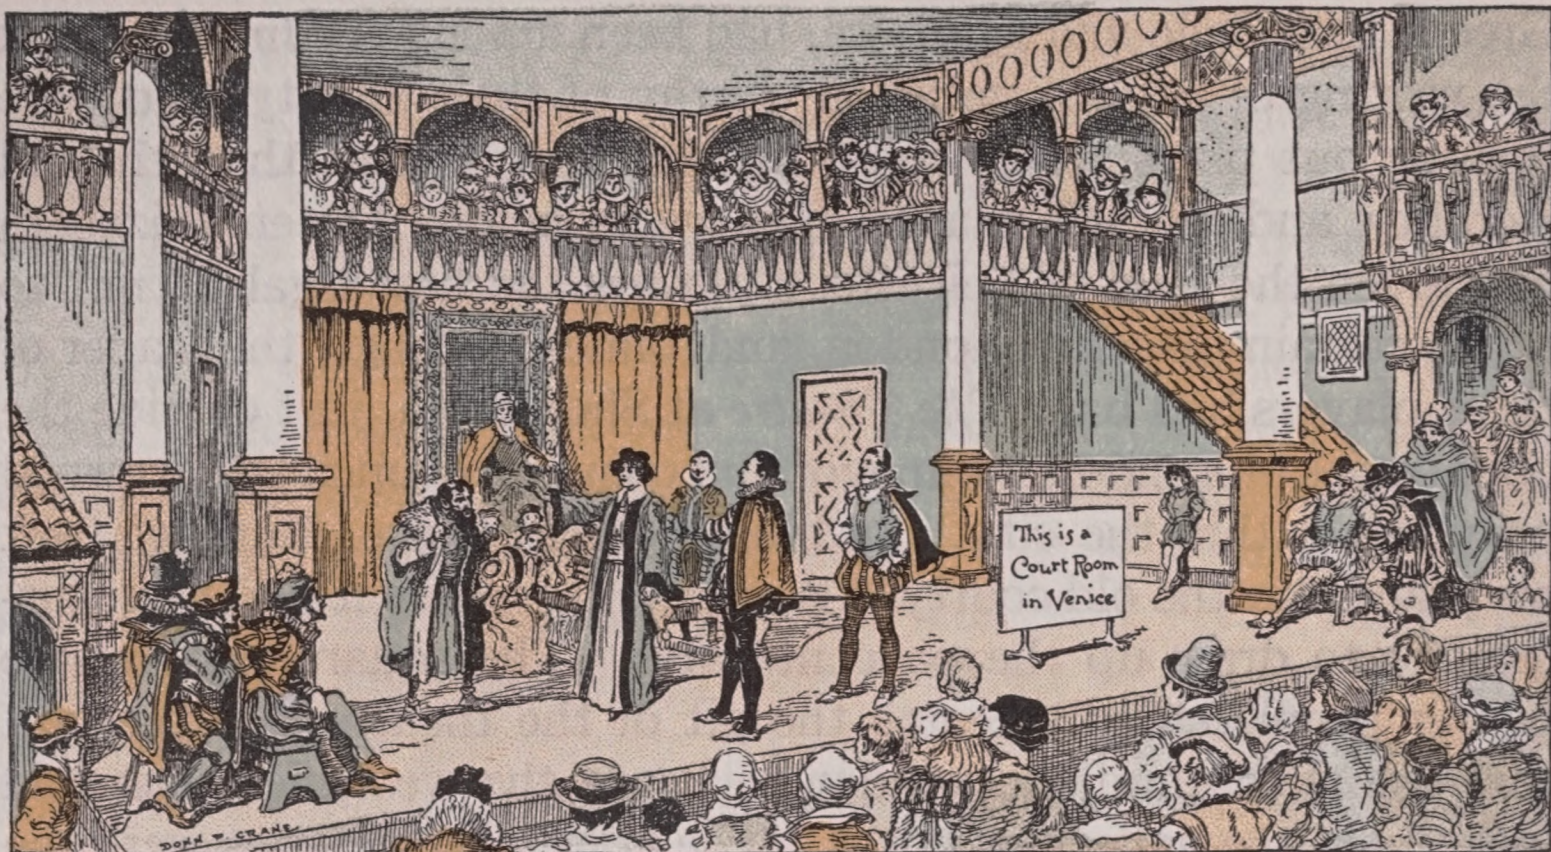 This is a
Court Room
in Venice
DONN P. CRANE